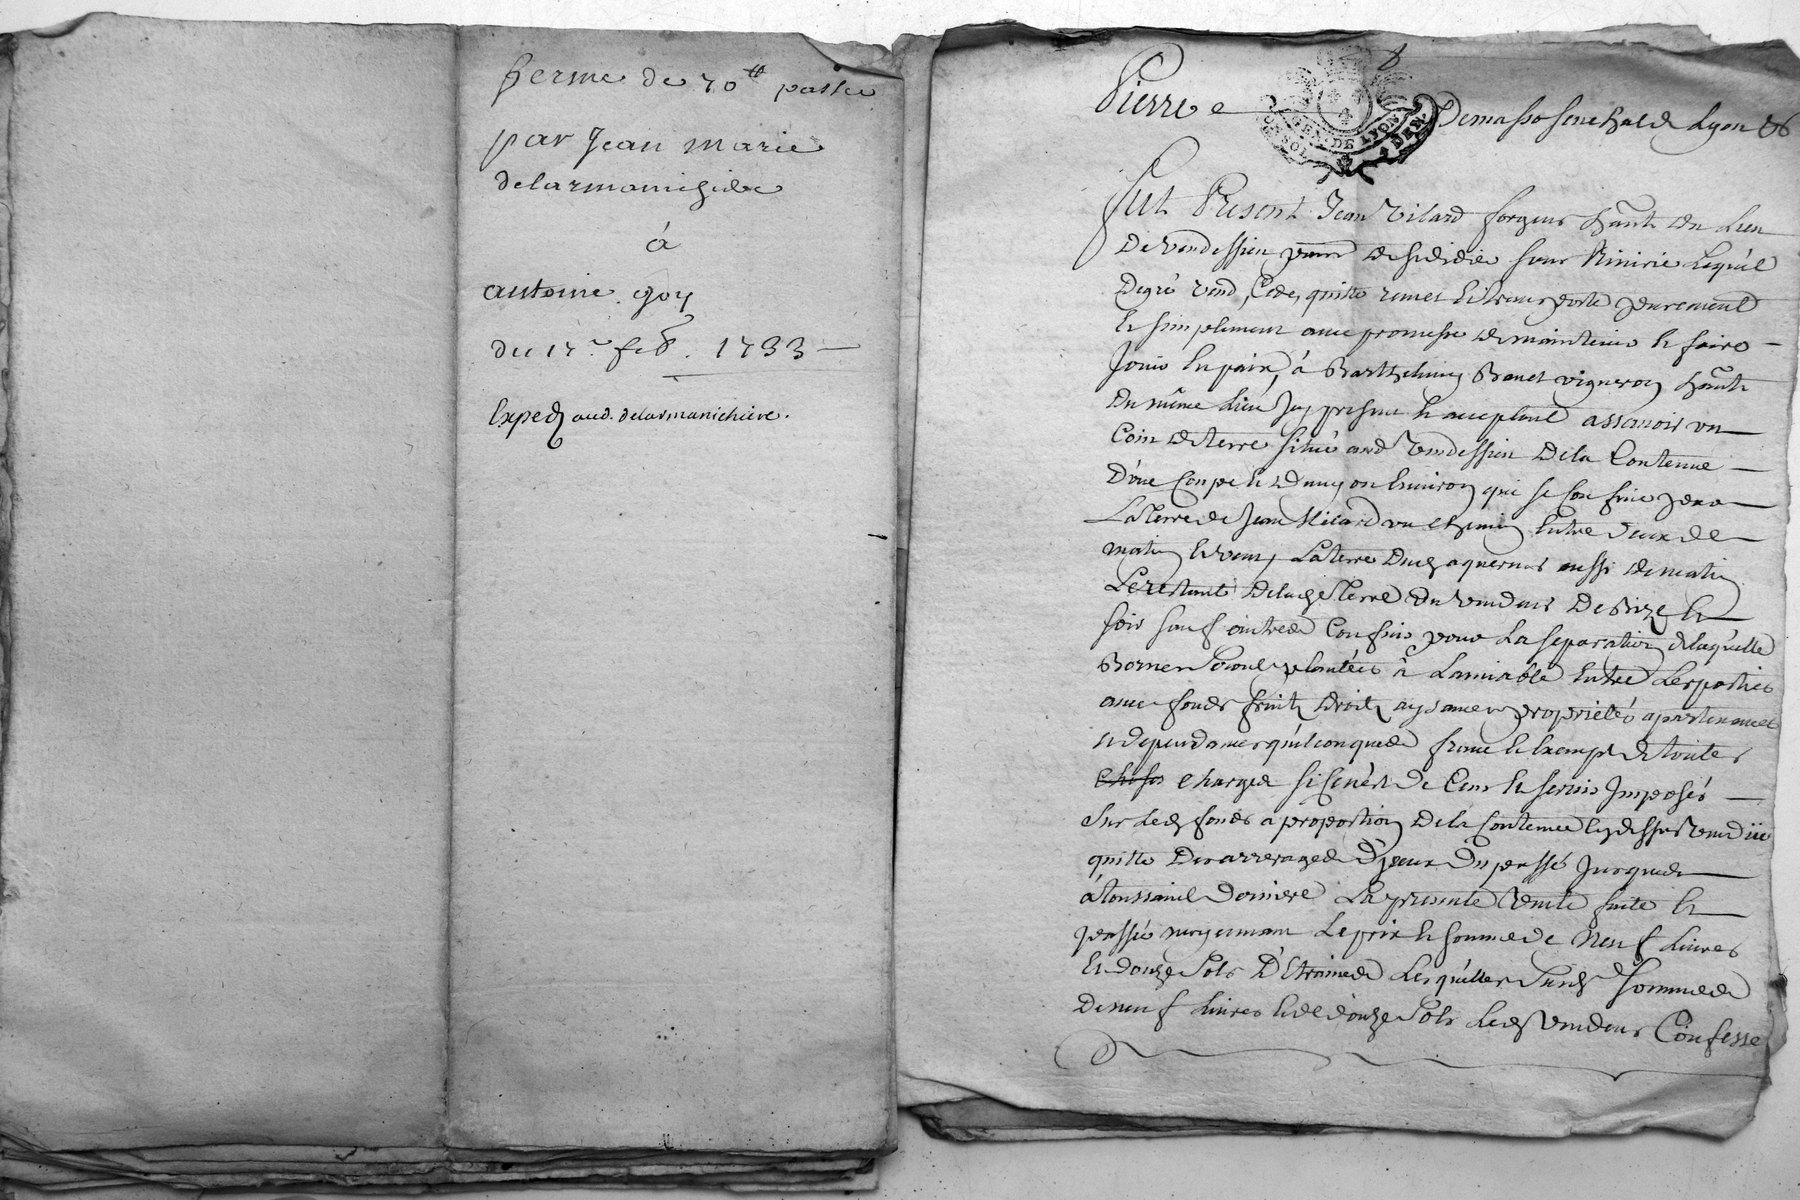 ferme de 70tt passée
par Jean Marie
delarmanichière
à
antoine goy
du 17e feb. 1733
Exped aud. delarmanichière.
8
Pierre e Demasso senechal de Lyon &
GEN. DE LYON
Fut Present Jean Vilard forgeur hant du Lieu
De Vendessien parr de St didier sous Riuirie Lequel
Degré vend, Cede, quitte remet et transporte purement
et simplement auec promesse de maintenir et faire
Jouir en paix, à Barthelmy Bonet vigneron hant
Du même Lieu Jcy present et acceptant assauoir un
Coin de terre situé aud Vendessien De la Contenue
D'une Coupe et demy ou Enuiron qui se Confine par
La Terre de Jean Vilard un chemin Entre deux de
matin et vent, La terre Duch aquernes aussi de matin
Le restant De lad Terre du vendeur De bize et
soir sauf autred Confins pour La separation de laquelle
Bornes seront plantées à Lamiable Entre Les parties
auec fonds fruits Droits aysances proprietés apartenances
et dependances quelconqued franc et Exempt de toutes
chofes charged si Ce n'est de Cens et seruis Jmposés
sur Led fonds a proportion De la Contenue cy dessus vendüe
quitte Des arreraged D'jceux du passé Jusqued
à Toussaint Derniere La presente Vente faite et
passée moyennant Le prix et somme de Neuf Liures
et douze sols D'Etrained Lesquelles Susd sommed
De neuf Liures et de douze sols Led Vendeur Confesse